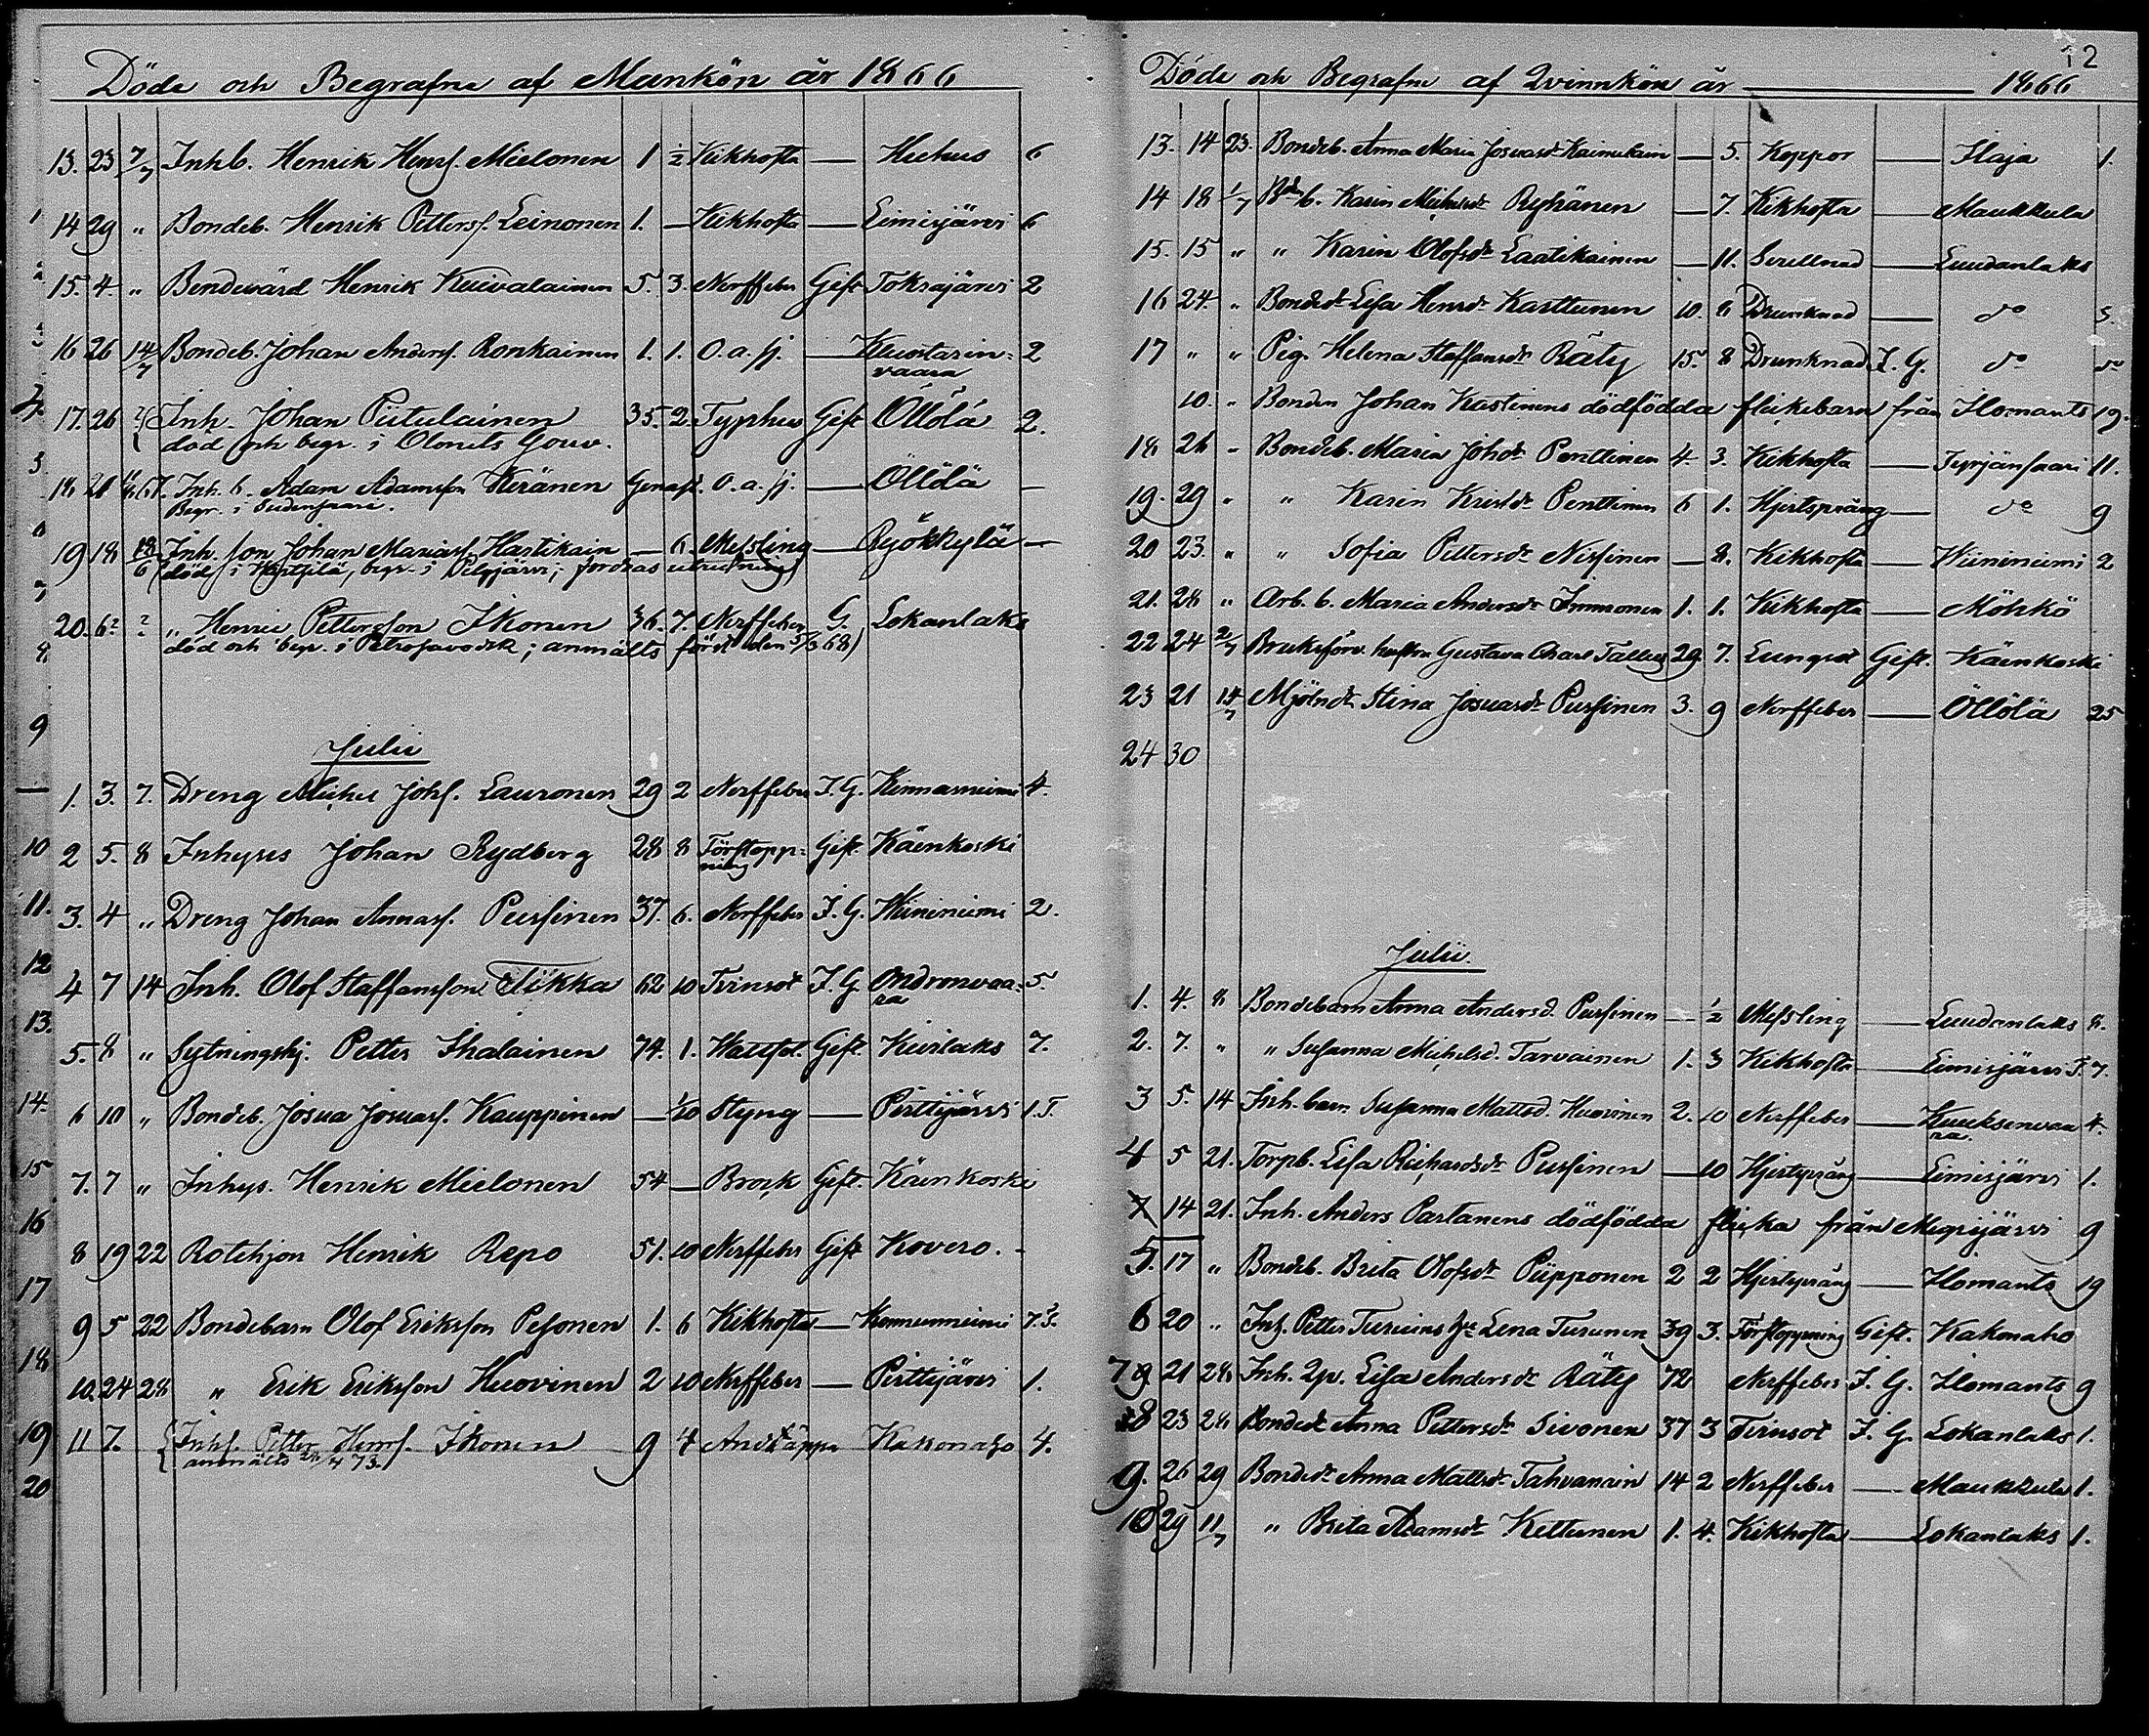 Döde och Begrafne af Mankön år 1866
13. 23 7/7 Inhb. Henrik Henrs. Mielonen 1 ½ Kikhosta — Huhus 6
14 29 " Bondeb. Henrik Petters. Leinonen 1. — Kikhosta — Liimisjärvi 6
15. 4. " Bondevärd Henrik Kuivalainen 5. 3. Nerffeber Gift Toksajärvi 2
16 26 14/7 Bondeb. Johan Anders. Ronkainen 1. 1. O. a. sj. — Kuostarin= 2
vaara
17. 26 ? Inh. Johan Piitulainen 35. 2. Typhus Gift Öllölä 2.
död och begr. i Olonets Gouv.
18 21 Inh. b. Adam Adamsson Keränen O. a. sj. — Öllölä —
Begr. i
19 18 Inh. son Johan Mariæs. Hartikain — 6. Messling — Ryökkylä —
död i begr. i fordras utredning
20. 6? ? " Henric Pettersson Ikonen 36. 7. Nerffeber G. Lokanlaks
död och begr. i Petrosavodsk; anmälts först den 5/3 68)
Julii
1. 3. 7. Dreng Michel Johs. Lauronen 29 2 Nerffeber I. G. Kinnasniemi 4.
2 5. 8 Inhyses Johan Rydberg 28 8 Förstopp= Gift. Käenkoski
ning
3. 4 " Dreng Johan Annas. Pursinen 37. 6. Nerffeber I. G. Hiininiemi 2.
4 7 14 Inh. Olof Staffansson Tiikka 62 10 Tvinsot I. G. Ondronvaa= 5.
ra
5. 8 " Sytningshj. Petter Ihalainen 74. 1. Wattsot. Gift. Kuivlaks 7.
6 10 " Bondeb. Josua Josuas. Kauppinen — 1/20 Styng — Pirttijärvi 1. T.
7. 7 " Inhys. Henrik Mielonen 54 — Brock Gift. Käenkoski
8 19 22 Rotehjon Henrik Repo 51. 10 Nerffeber Gift Kovero.
9 5 22 Bondebarn Olof Eriksson Pesonen 1. 6 Kikhosta — Konnunniemi 7.
10. 24 28 " Erik Eriksson Huovinen 2 10 Nerffeber — Pirttijärvi 1.
11 7. Inhs. Petter Henrs. Ikonen 9 4 Andtäppa Kakonaho 4.
anmälts 73.
12
Döde och Begrafne af Qvinnkön år — 1866
13. 14 23. Bondeb. Anna Maria Josuasdr Kaimulain — 5. Koppor — Ilaja 1.
14 18 1/7 Bdb. Karin Michelsdr Ryhänen — 7. Kikhosta — Maukkula
15. 15 " " Karin Olofsdr Laatikainen — 11. Svullnad — Luudanlaks
16 24. " Bondedr Lisa Henrsdr Karttunen 10. 8 Drunknad — do 5.
17 " " Pig. Helena Staffansdr Räty 15. 8 Drunknad I. G. do do
10. " Bonden Johan Kastinens dödfödda flickebarn från Ilomants 19.
18 26 " Bondeb. Maria Johdr Penttinen 4. 3. Kikhosta — Tyrjänsaari 11.
19. 29 " " Karin Kristdr Penttinen 6 1. Hjertspräng — do 9
20 23. " " Sofia Pettersdr Nissinen — 8. Kikhosta — Hiininiemi 2
21. 28 " Arb. b. Maria Andersdr Immonen 1. 1. Kikhosta — Möhkö
22 24 2/7 Bruksförv. hustru Gustava Charl Tallus 29. 7. Lungsot Gift. Käenkoski
23 21 14/7 Mjölndr Stina Josuasdr Pursinen 3. 9 Nerffeber — Öllölä 25
24 30
Julii.
1. 4. 8 Bondebarn Anna Andersd. Pursinen — ½ Messling — Luudanlaks 8.
2. 7. " " Susanna Michelsd. Tarvainen 1. 3 Kikhosta — Liimisjärvi T. 7.
3 5. 14 Inh. barn Susanna Mattsd. Huovinen 2. 10 Nerffeber — Kuuksenvaa 4.
ra.
4 5 21. Torpb. Lisa Richardsdr Pursinen — 10 Hjertspräng — Liimisjärvi 1.
14 21. Inh. Anders Partanens dödfödda flicka från Megrijärvi 9
5. 17 " Bondeb. Brita Olofsdr Piipponen 2 2 Hjertspräng — Ilomants 19
6 20 " Inh. Petter Turuins he Lena Turunen 39 3. Förstoppning Gift. Kakonaho
7 21 28 Inh. Qv. Lisa Andersdr Räty 72 Nerffeber I. G. Ilomants 9
8 23 28 Bondedr Anna Pettersdr Sivonen 37 3 Tvinsot I. G. Lokanlaks 1.
9. 26 29 Bondedr Anna Mattsdr Tahvanain 14 2 Nerffeber — Maukkula 1.
10 29 11/7 " Brita Adamsdr Kettunen 1. 4. Kikhosta — Lokanlaks 1.